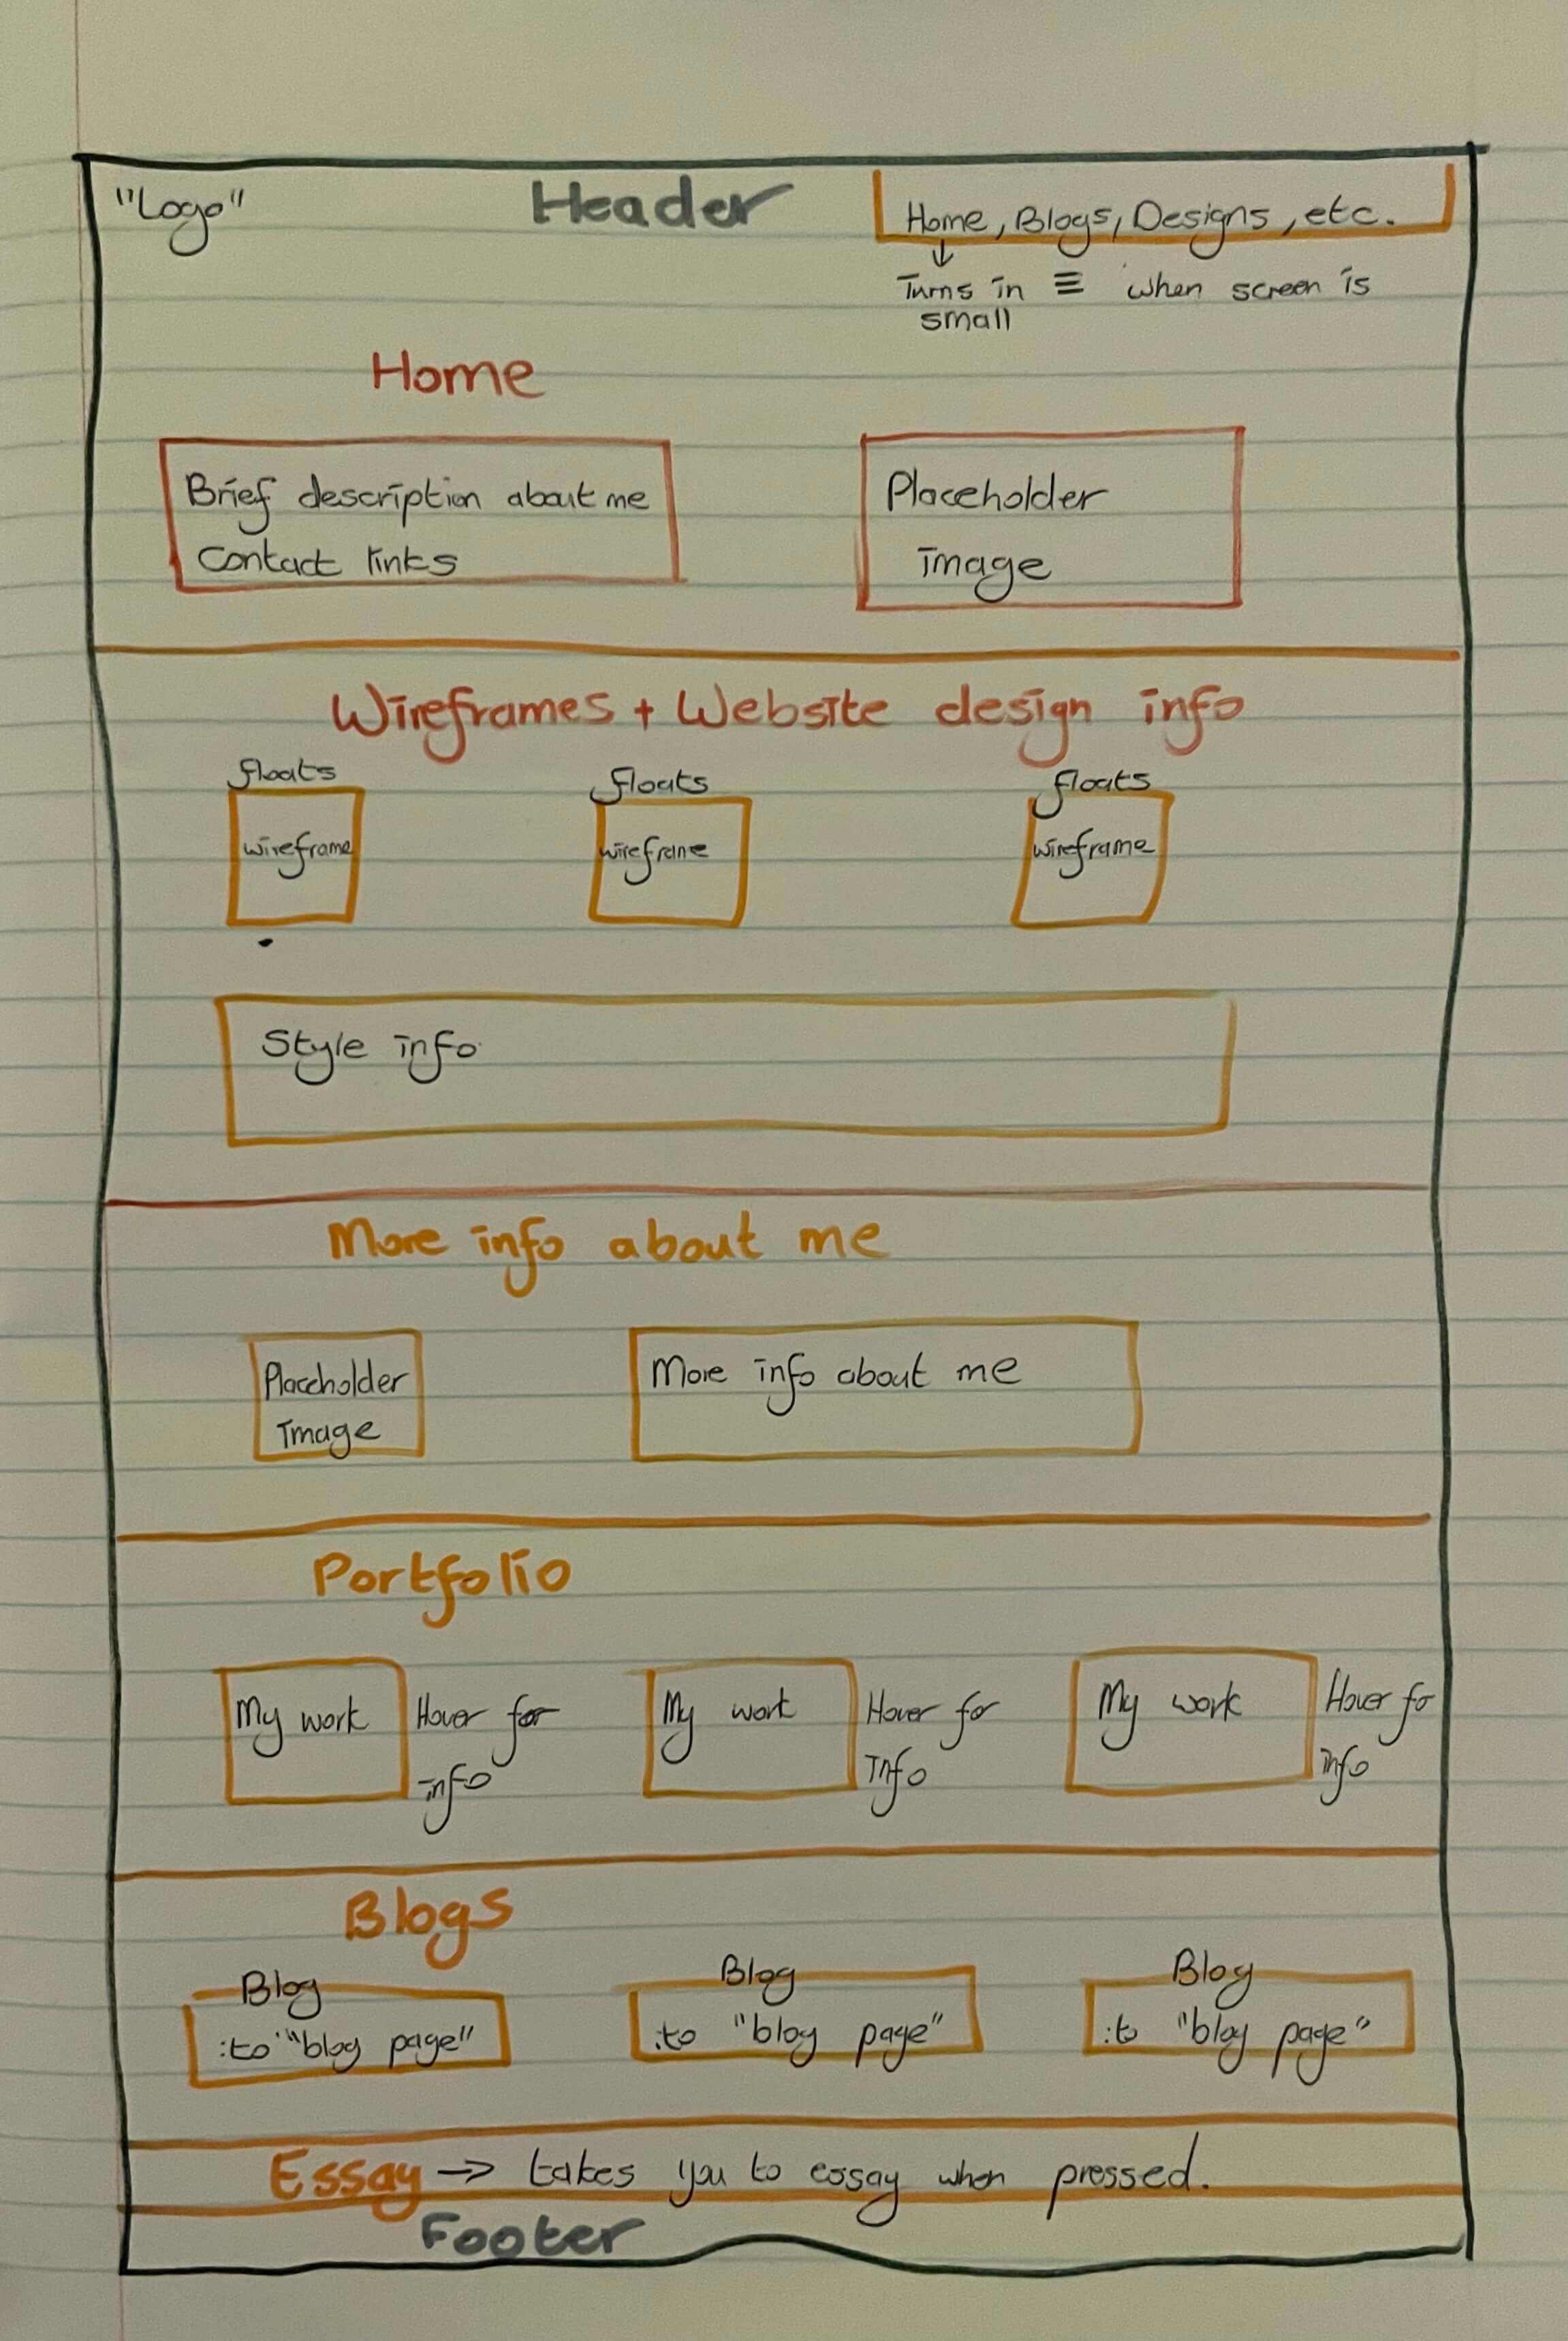 "Logo"
Header
Home, Blogs, Designs, etc.
↓
Turns in ≡ when screen is
small
Home
Brief description about me
Contact links
Placeholder
image
Wireframes + Website design info
floats
wireframe
floats
wireframe
floats
wireframe
Style info
More info about me
Placeholder
image
More info about me
Portfolio
My work
Hover for
info
My work
Hover for
info
My work
Hover fo
info
Blogs
Blog
:to "blog page"
Blog
:to "blog page"
Blog
:to "blog page"
Essay → takes you to essay when pressed.
Footer